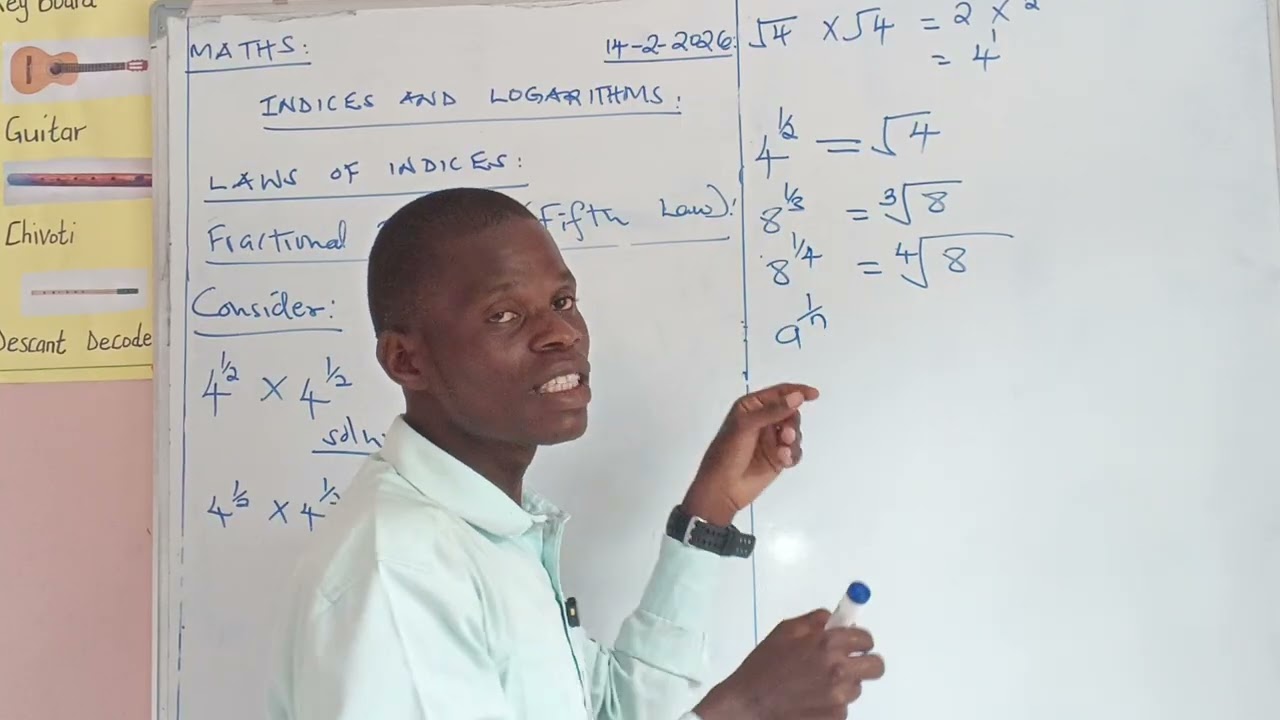 Key Board
Guitar
Chivoti
Descant Decode
MATHS:
14-2-2026
INDICES AND LOGARITHMS:
LAWS OF INDICES:
Fractional (Fifth Law):
Consider:
4^½ × 4^½
soln
4^½ × 4^½
√4 × √4 = 2 × 2
= 4^1
4^½ = √4
8^⅓ = ³√8
8^¼ = ⁴√8
a^1/n